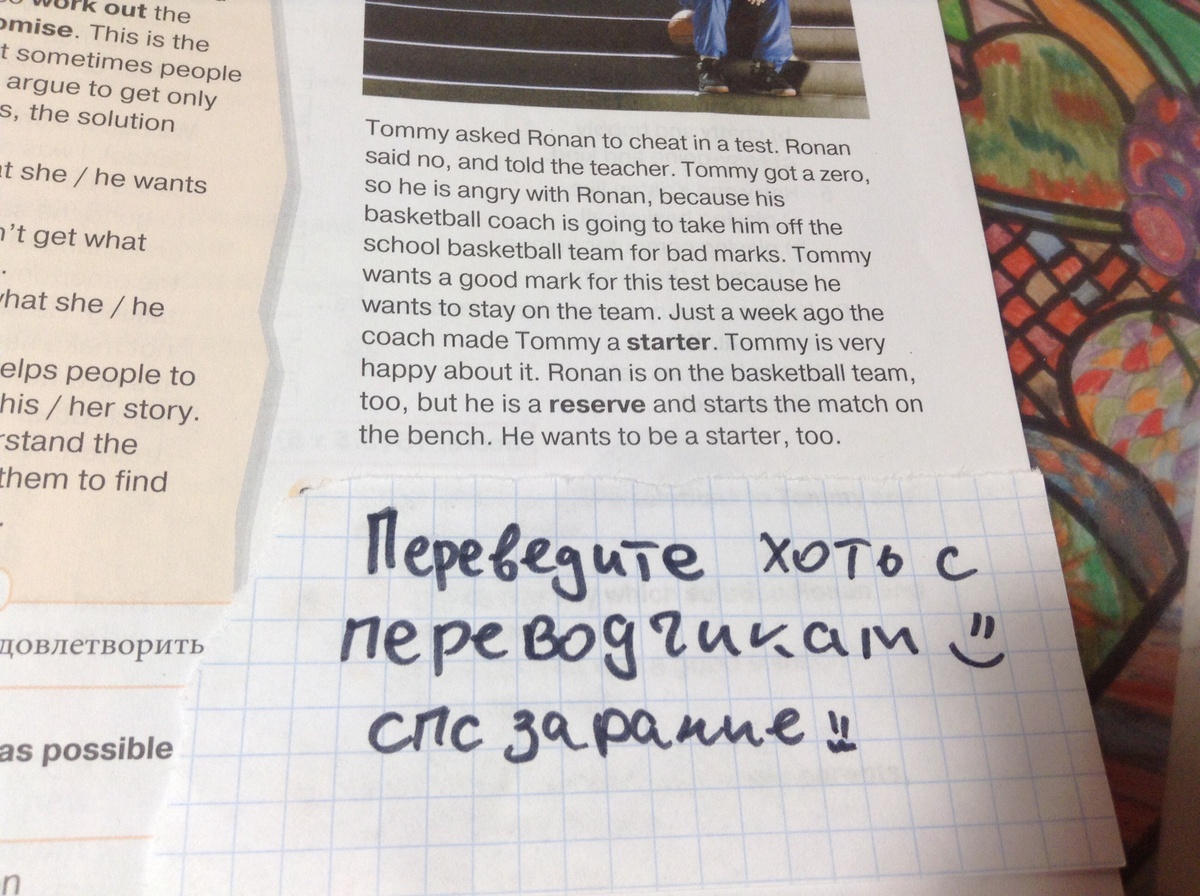 work out the
omise. This is the
t sometimes people
argue to get only
s, the solution
at she / he wants
n't get what
.
what she / he
elps people to
his / her story.
rstand the
them to find
.
довлетворить
as possible
n
Tommy asked Ronan to cheat in a test. Ronan
said no, and told the teacher. Tommy got a zero,
so he is angry with Ronan, because his
basketball coach is going to take him off the
school basketball team for bad marks. Tommy
wants a good mark for this test because he
wants to stay on the team. Just a week ago the
coach made Tommy a starter. Tommy is very
happy about it. Ronan is on the basketball team,
too, but he is a reserve and starts the match on
the bench. He wants to be a starter, too.
Переведите хоть с
переводчикам
спс зарание !!